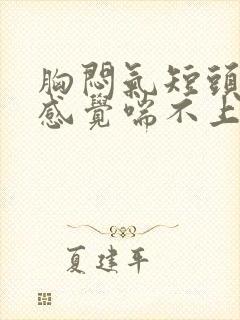 胸悶氣短頭
感覺喘不上
夏建平